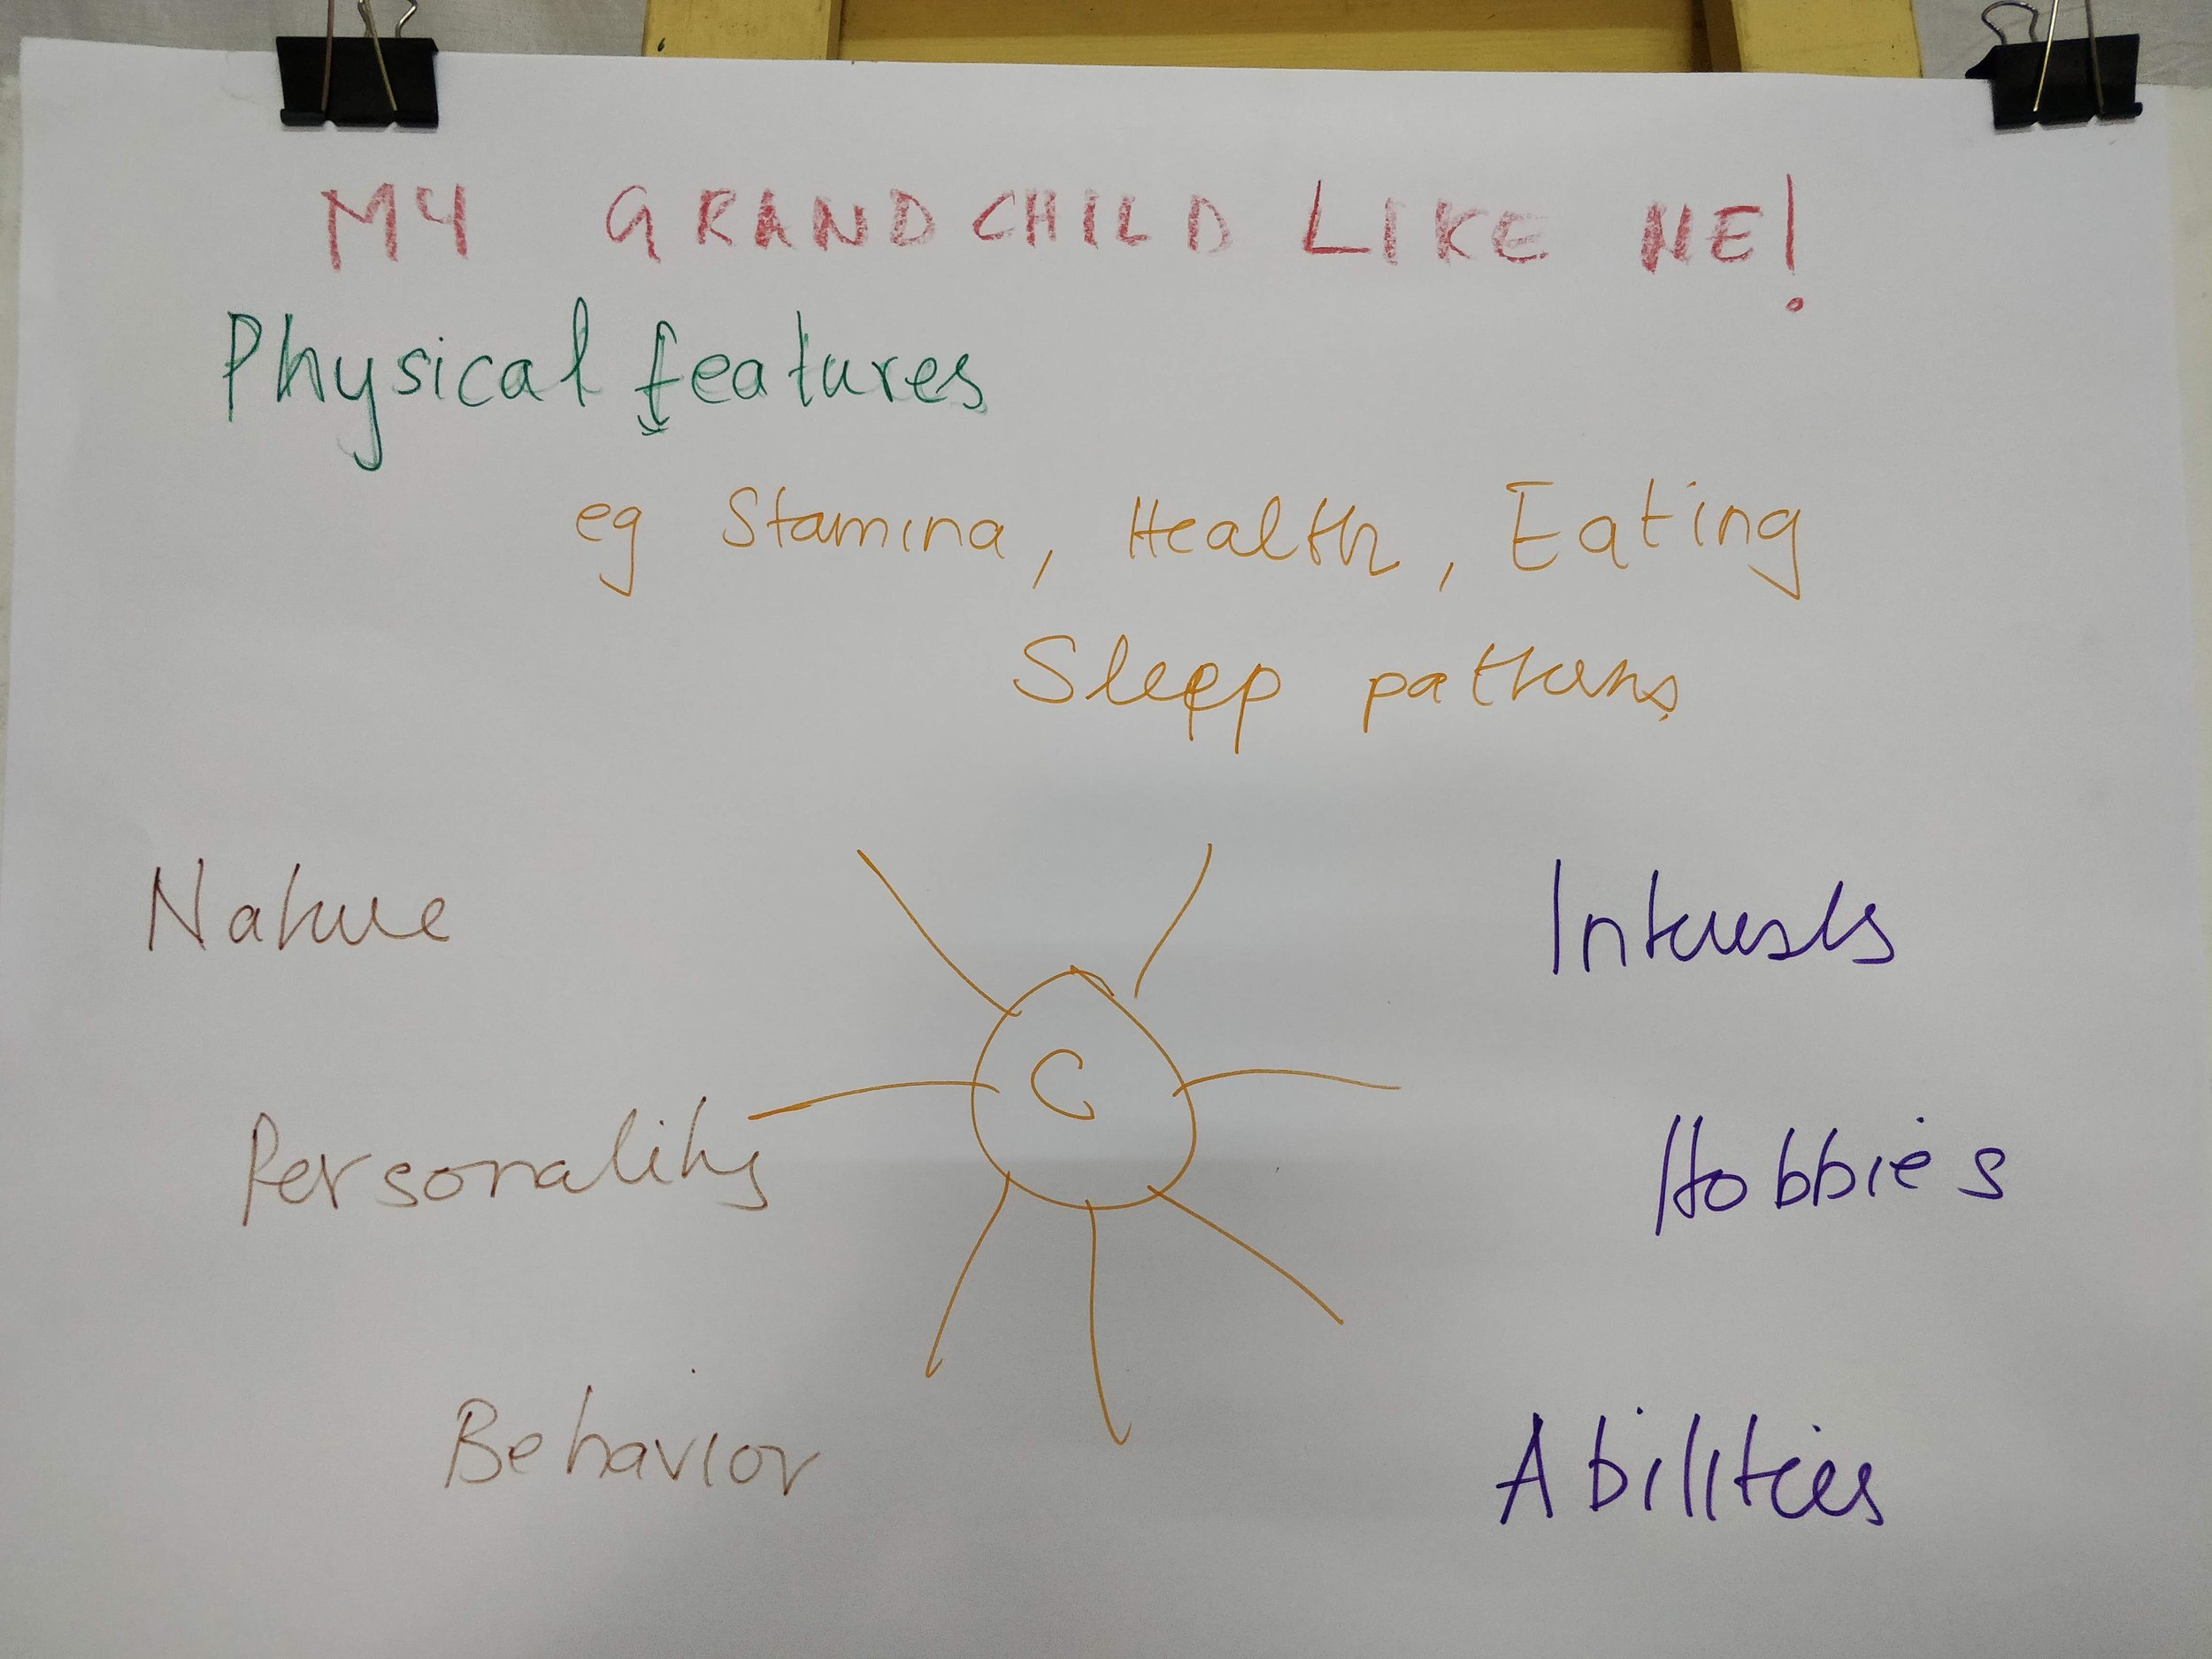 MY GRANDCHILD LIKE ME!
Physical features
eg Stamina, Health, Eating
Sleep patterns
Nature
Interests
C
Personality
Hobbies
Behavior
Abilities